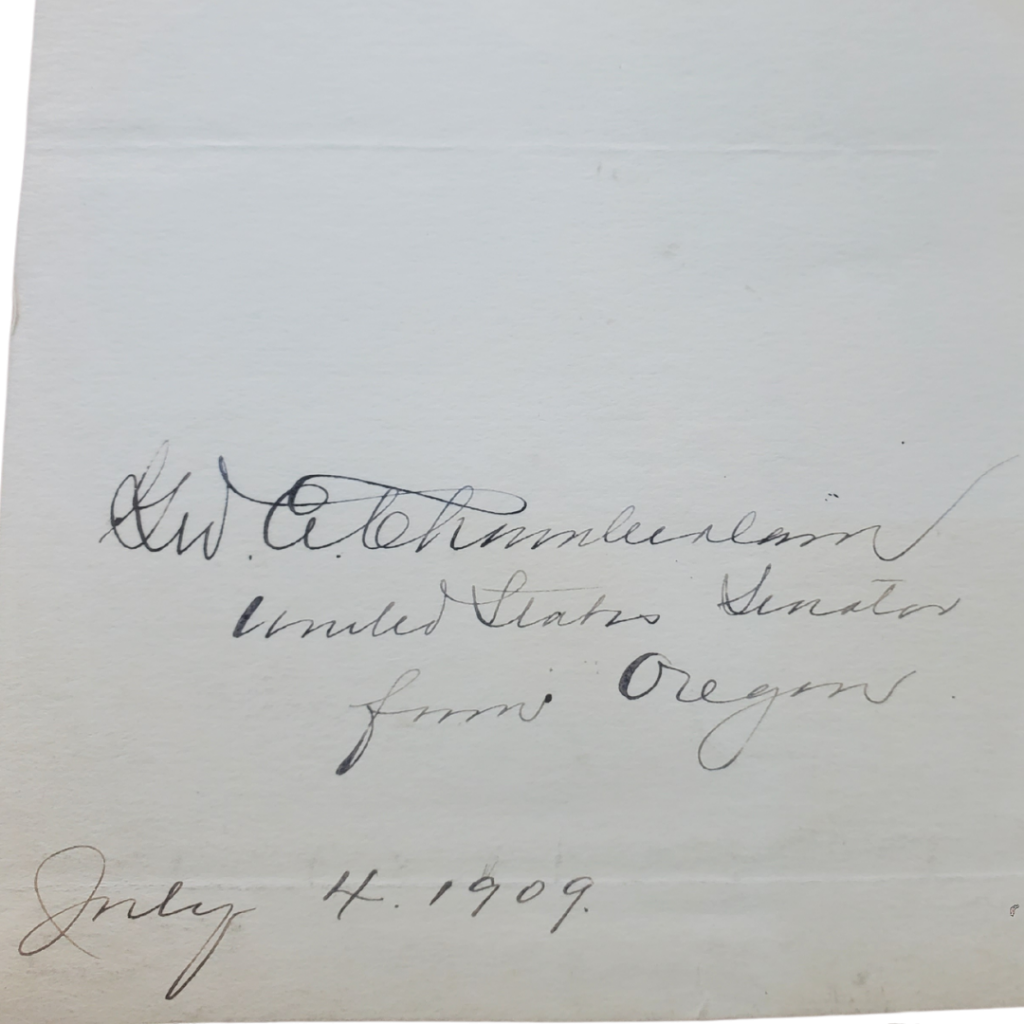 Geo. E. Chamberlain
United States Senator
from Oregon
July 4. 1909.